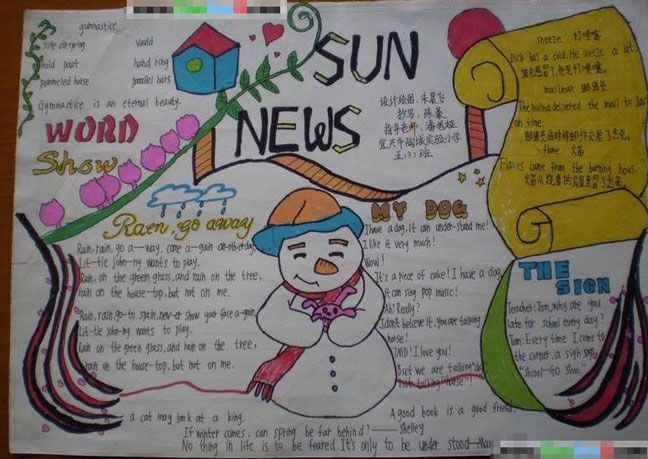 gymnastics
side offspring vauld
hold part hand ring
pommeled horse parallel bars
Gymnastice is an eternal beauty.
WORD
Show
SUN
NEWS
设计绘图：朱晨飞
抄写：陈豪
指导老师：潘旭娅
宜兴市陶城实验小学
五(3)班
sneeze 打喷嚏
Dick has a cold. He sneeze a lot.
mailman 邮递员
The mailman delivered the mail to Jack
on time.
flame 火焰
Flares came from the burning hous.
Rain, go away
Rain, rain, go a—way, come a—gain an-oth-er day,
Lit—tle john-ny wants to play.
Rain, on the green grass, and rain on the tree,
rain on the house-top, but not on me.
Rain, rain, go to spain, nev-er show your face a-gain,
Lit-tle john-ny wants to play.
Rain on the green grass, and rain on the tree,
rain on the house-top, but not on me.
MY DOG
I have a dog, It can under-stand me!
I like it very much!
Wow!
It's a piece of cake! I have a dog,
it can sing pop music!
Ah! Really?
I don't believe it, you are talking
horse!
I love you!
But we are talking "dog"
not talking "horse"!
THE
SIGN
Teacher: Tom, why are you
late for school every day?
Tom: Every time I come to
the corner, a sign says,
"School—GO Slow."
a cat may look at a king.
A good book is a good friend.
If winter comes, can spring be far behind?——Shelley
No thing in life is to be feared. It's only to be under stood—